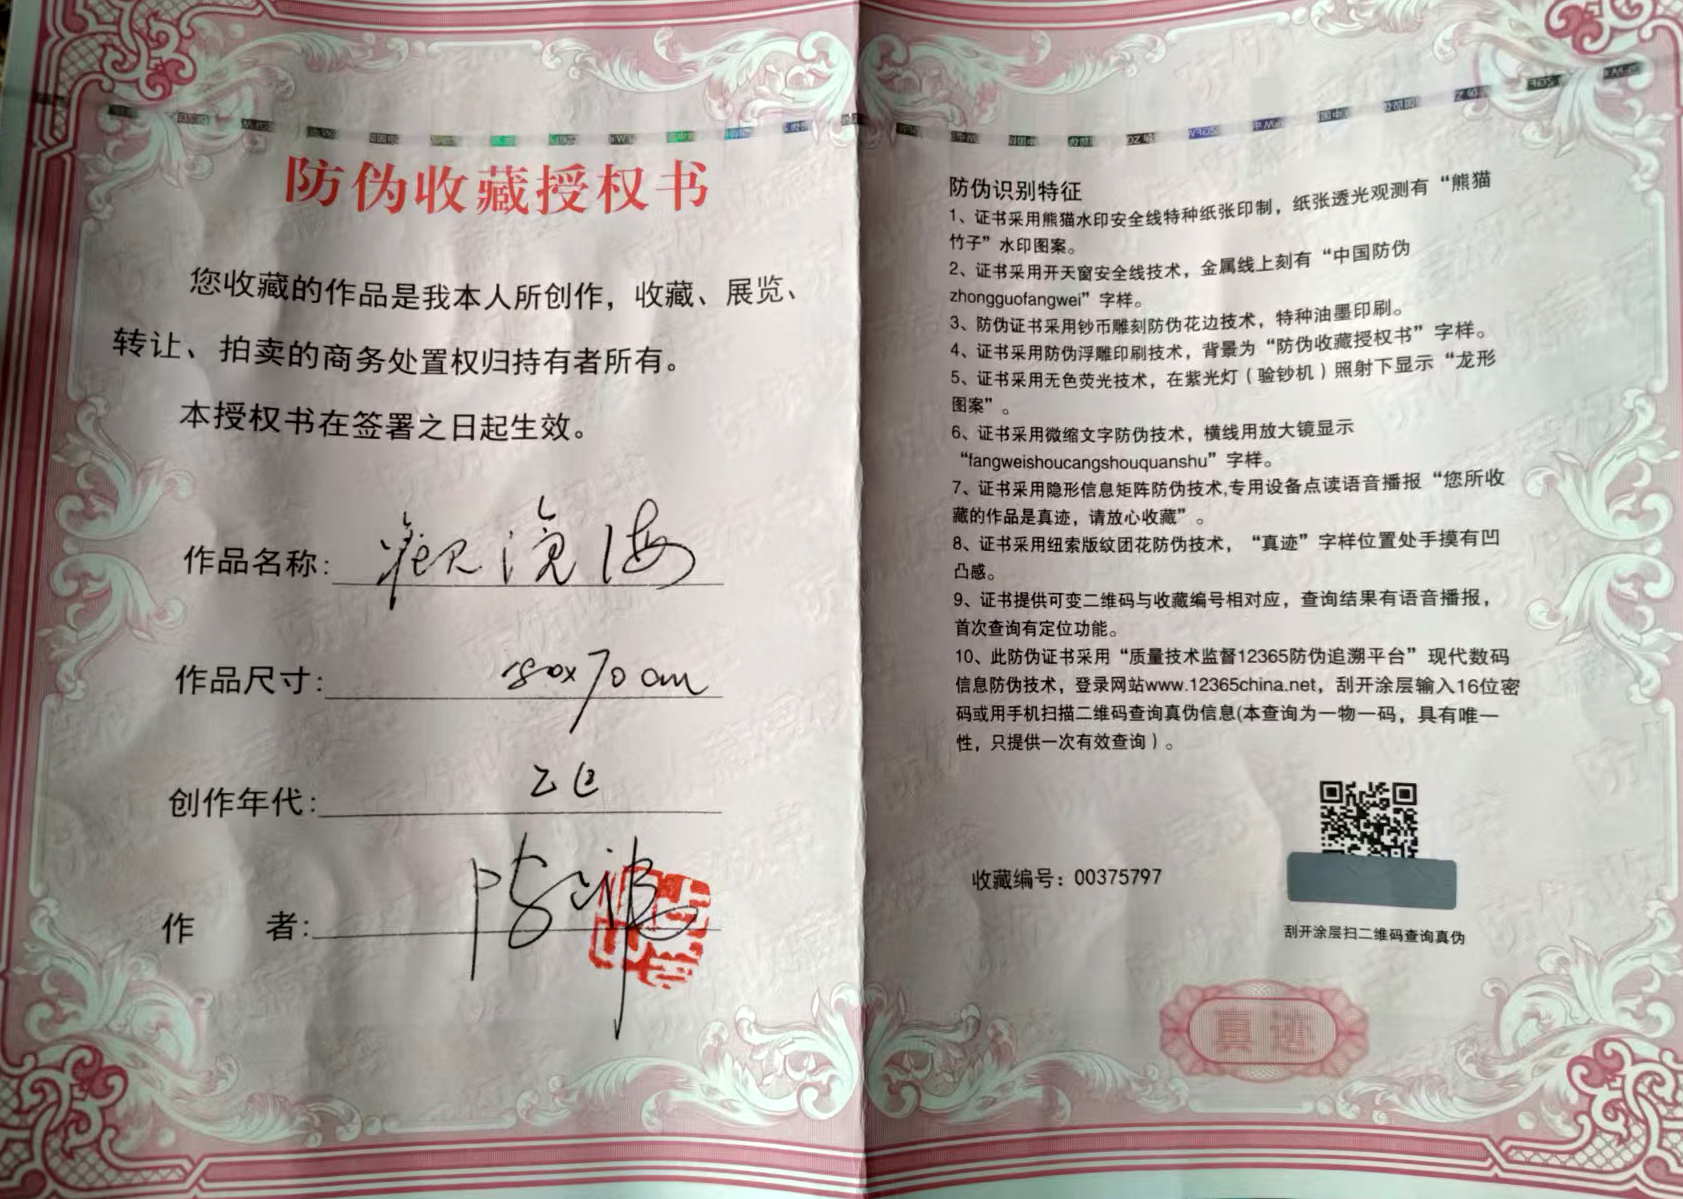 防伪收藏授权书
您收藏的作品是我本人所创作，收藏、展览、
转让、拍卖的商务处置权归持有者所有。
本授权书在签署之日起生效。
作品名称：观沧海
作品尺寸：180x70cm
创作年代：乙巳
作 者：
防伪识别特征
1、证书采用熊猫水印安全线特种纸张印制，纸张透光观测有“熊猫
竹子”水印图案。
2、证书采用开天窗安全线技术，金属线上刻有“中国防伪
zhongguofangwei”字样。
3、防伪证书采用钞币雕刻防伪花边技术，特种油墨印刷。
4、证书采用防伪浮雕印刷技术，背景为“防伪收藏授权书”字样。
5、证书采用无色荧光技术，在紫光灯（验钞机）照射下显示“龙形
图案”。
6、证书采用微缩文字防伪技术，横线用放大镜显示
“fangweishoucangshouquanshu”字样。
7、证书采用隐形信息矩阵防伪技术,专用设备点读语音播报“您所收
藏的作品是真迹，请放心收藏”。
8、证书采用纽索版纹团花防伪技术，“真迹”字样位置处手摸有凹
凸感。
9、证书提供可变二维码与收藏编号相对应，查询结果有语音播报，
首次查询有定位功能。
10、此防伪证书采用“质量技术监督12365防伪追溯平台”现代数码
信息防伪技术，登录网站www.12365china.net，刮开涂层输入16位密
码或用手机扫描二维码查询真伪信息(本查询为一物一码，具有唯一
性，只提供一次有效查询）。
收藏编号：00375797
刮开涂层扫二维码查询真伪
真迹